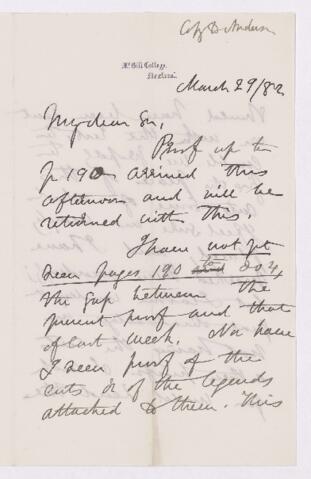 Copy D Anderson
McGill College,
Montreal.
March 29/82
My dear Sir,
Proof up to
p 190 arrived this
afternoon and will be
returned with this.
I have not yet
seen pages 190 to 204,
the gap between the
present proof and that
of last week. Nor have
I seen proof of the
cuts & of the legends
attached to them. This